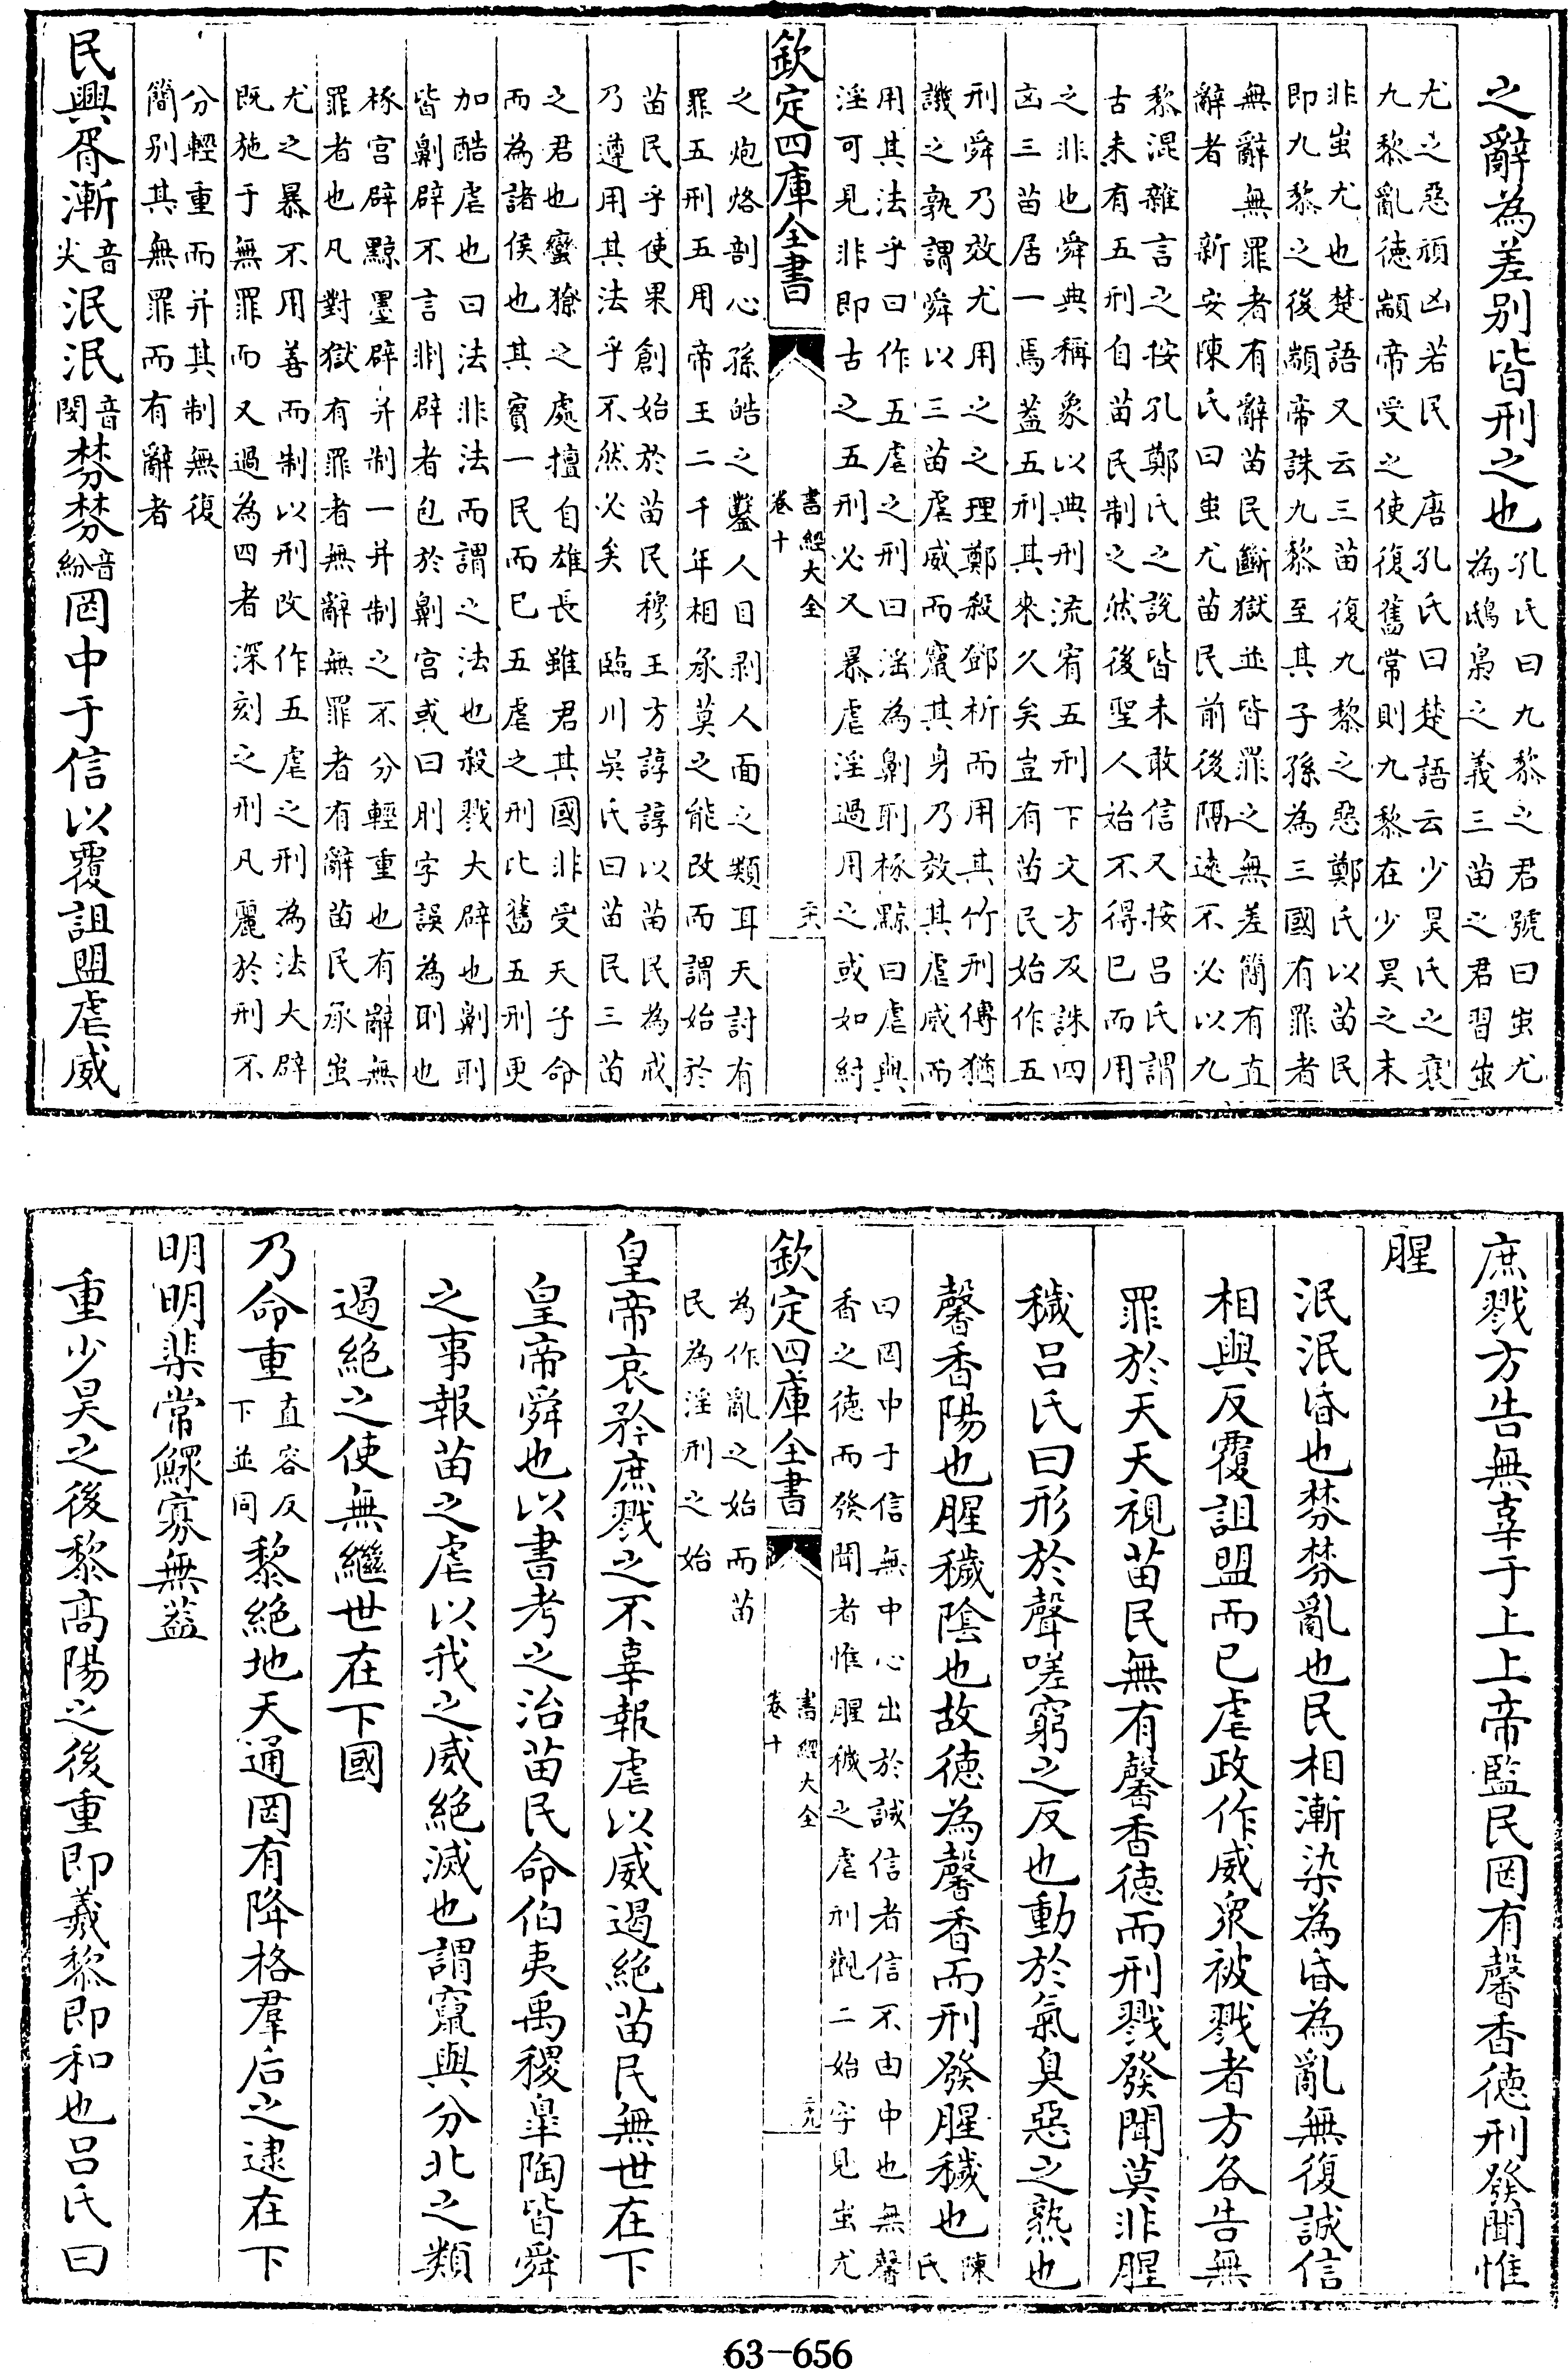 之辭為差别皆刑之也孔氏曰九黎之君號曰蚩尤
為鴟梟之義三苗之君習蚩
尤之惡頑凶若民　唐孔氏曰楚語云少昊氏之衰
九黎亂徳顓帝受之使復舊常則九黎在少昊之末
非蚩尤也楚語又云三苗復九黎之惡鄭氏以苗民
即九黎之後顓帝誅九黎至其子孫為三國有罪者
無辭無罪者有辭苗民斷獄並皆罪之無差簡有直
辭者　新安陳氏曰蚩尤苗民前後隔逺不必以九
黎混雜言之按孔鄭氏之説皆未敢信又按吕氏謂
古未有五刑自苗民制之然後聖人始不得已而用
之非也舜典稱象以典刑流宥五刑下文方及誅四
凶三苗居一焉葢五刑其來久矣豈有苗民始作五
刑舜乃效尤用之之理鄭殺鄧析而用其竹刑傳猶
譏之孰謂舜以三苗虐威而竄其身乃效其虐威而
用其法乎曰作五虐之刑曰淫為劓刵椓黥曰虐與
淫可見非即古之五刑必又暴虐淫過用之或如紂
欽定四庫全書
書經大全
卷十
二十八
之炮烙剖心孫皓之鑿人目剥人面之類耳天討有
罪五刑五用帝王二千年相承莫之能改而謂始於
苗民乎使果創始於苗民穆王方諄諄以苗民為戒
乃遵用其法乎不然必矣　臨川吳氏曰苗民三苗
之君也蠻獠之處擅自雄長雖君其國非受天子命
而為諸侯也其實一民而已五虐之刑比舊五刑更
加酷虐也曰法非法而謂之法也殺戮大辟也劓刵
皆劓辟不言剕辟者包於劓宫或曰刖字誤為刵也
椓宫辟黥墨辟并制一并制之不分輕重也有辭無
罪者也凡對獄有罪者無辭無罪者有辭苗民承蚩
尤之暴不用善而制以刑改作五虐之刑為法大辟
既施于無罪而又過為四者深刻之刑凡麗於刑不
分輕重而并其制無復
簡别其無罪而有辭者
民興胥漸音尖泯泯音閔棼棼音紛罔中于信以覆詛盟虐威
庶戮方告無辜于上上帝監民罔有馨香徳刑發聞惟
腥
泯泯昏也棼棼亂也民相漸染為昏為亂無復誠信
相與反覆詛盟而已虐政作威衆被戮者方各告無
罪於天天視苗民無有馨香徳而刑戮發聞莫非腥
穢吕氏曰形於聲嗟窮之反也動於氣臭惡之熟也
馨香陽也腥穢陰也故徳為馨香而刑發腥穢也陳氏
曰罔中于信無中心出於誠信者信不由中也無馨
香之徳而發聞者惟腥穢之虐刑觀二始字見蚩尤
欽定四庫全書
書經大全
卷十
二十九
為作亂之始而苗
民為淫刑之始
皇帝哀矜庶戮之不辜報虐以威遏絶苗民無世在下
皇帝舜也以書考之治苗民命伯夷禹稷臯陶皆舜
之事報苗之虐以我之威絶滅也謂竄與分北之類
遏絶之使無繼世在下國
乃命重直容反下並同黎絶地天通罔有降格羣后之逮在下
明明棐常鰥寡無葢
重少昊之後黎高陽之後重即羲黎即和也吕氏曰
63-656